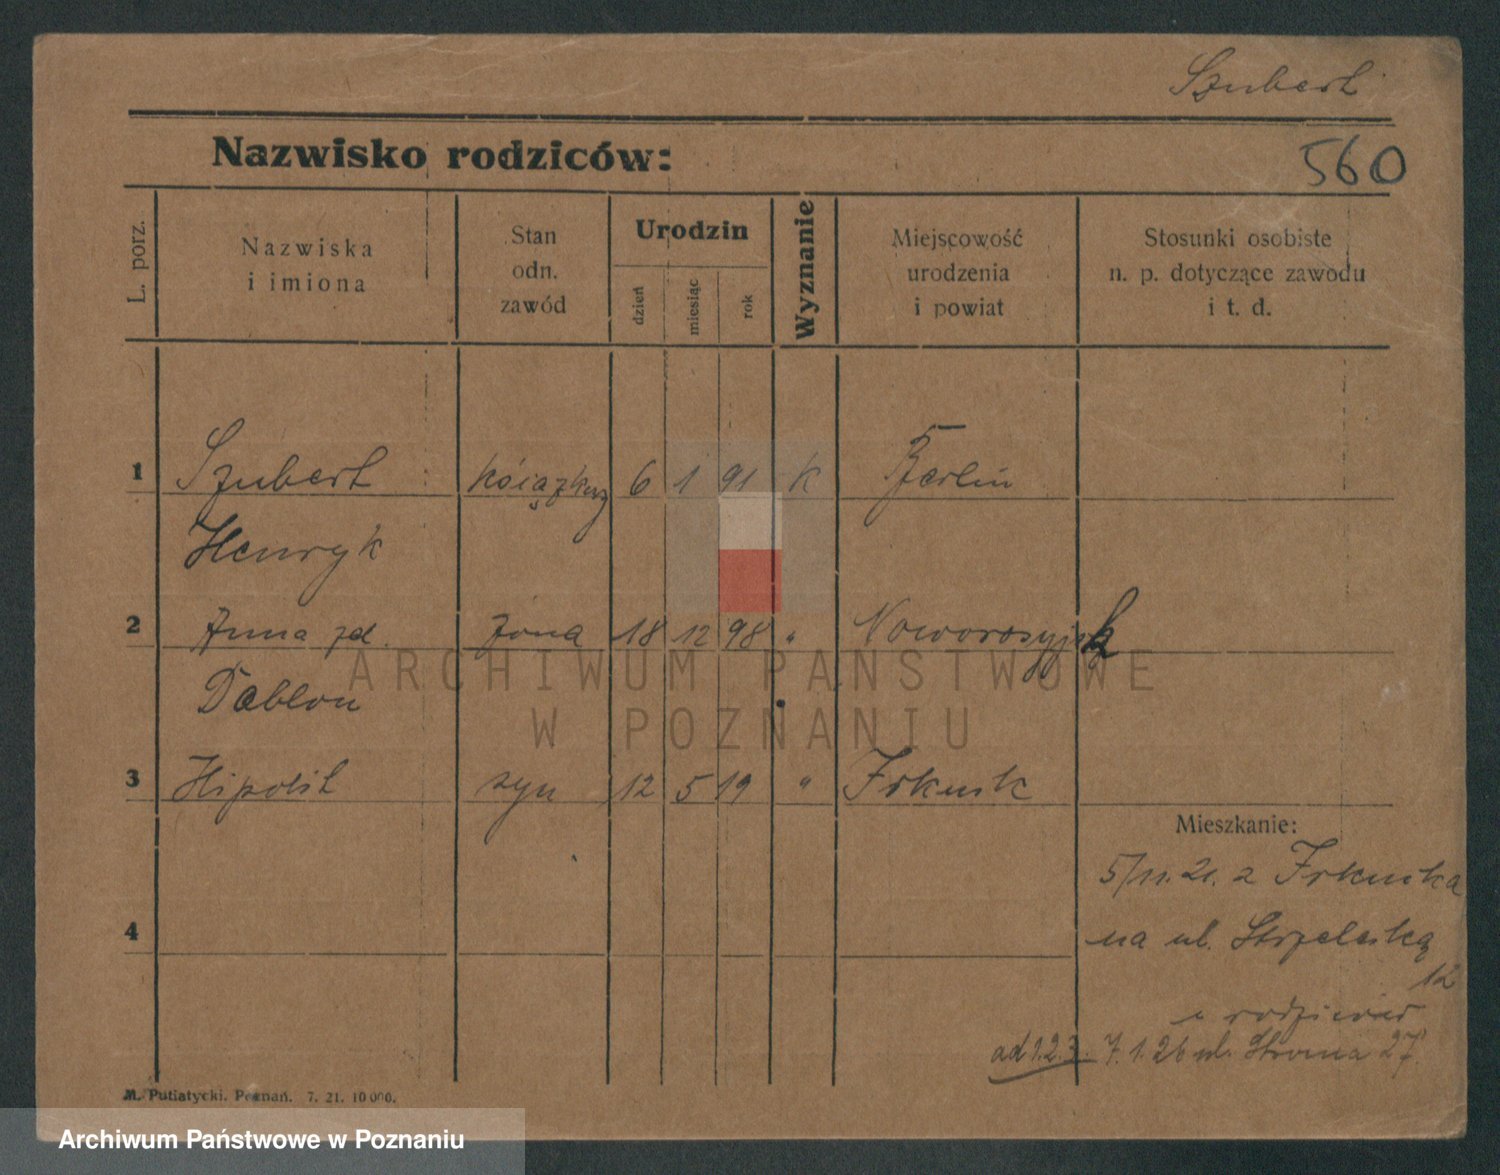 Szubert
Nazwisko rodziców:
560
L. porz.
Nazwiska
i imiona
Stan
odn.
zawód
Urodzin
dzień
miesiąc
rok
Wyznanie
Miejscowość
urodzenia
i powiat
Stosunki osobiste
n. p. dotyczące zawodu
i t. d.
1 Szubert 6 1 91 k Berlin
Henryk
2 Anna zd. żona 18 12 98 " Noworosyjsk
Dablon
3 Hipolit syn 12 5 19 " Irkusk
Mieszkanie:
5/11.21. z Irkucka
4
na ul. Strzelecką
12
ad 1.2.3. 7.1.26 ul. 27
M. Putiatycki. Poznań. 7. 21. 10 000.
ARCHIWUM PAŃSTWOWE
W POZNANIU
Archiwum Państwowe w Poznaniu